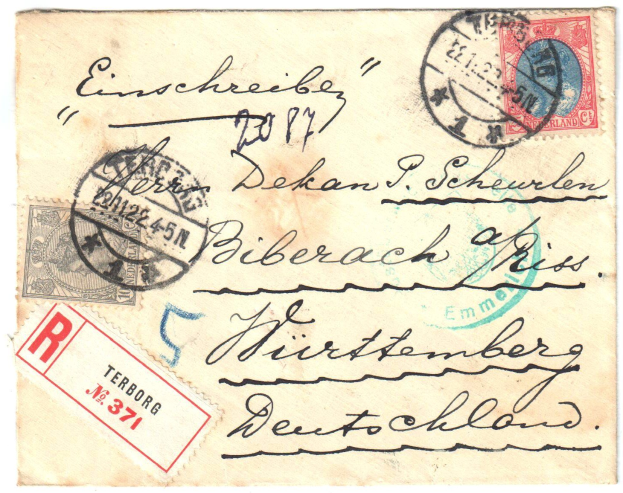 „Einschreiben”
2087
Herrn Dekan P. Scheurlen
Biberach a/Riss.
Württemberg
Deutschland.
TERBORG
22.11.22.4-5N
1
TERBORG
22.11.22.4-5N
1
NEDERLAND
Ct
NEDERLAND
10
5
R
TERBORG
No. 371
Emme